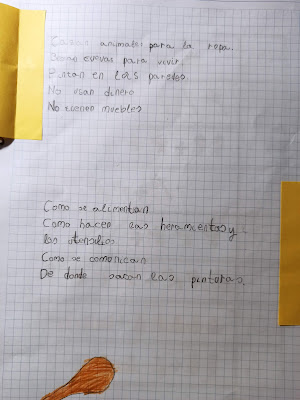 Cazan animales para la ropa.
Usan cuevas para vivir.
Pintan en las paredes
No usan dinero
No tienen muebles
Como se alimentan
Como hacen las heramientas y
los utensilios
Como se comonican
De donde sacan las pinturas.